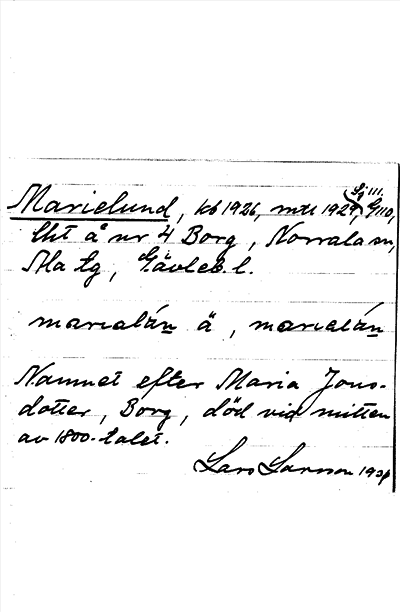 Sj III.
Marielund, kb 1926, mtl 1929, G110,
lht å nr 4 Borg, Norrala sn,
Ala tg, Gävleb. l.
marıalán ä, marıelán
Namnet efter Maria Jons-
dotter, Borg, död vid mitten
av 1800-talet.
Lars Larsson